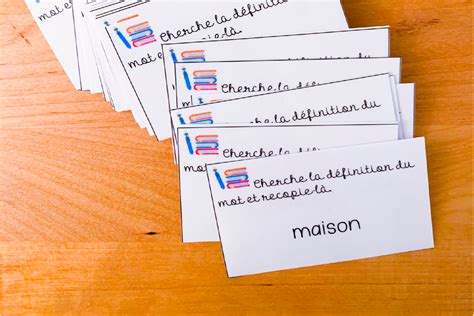 Cherche la définition du
mot et recopie là.
Cherche la
Cherche la définition du
Cherche la définition du
Cherche la définition du
mot et recopie là.
maison